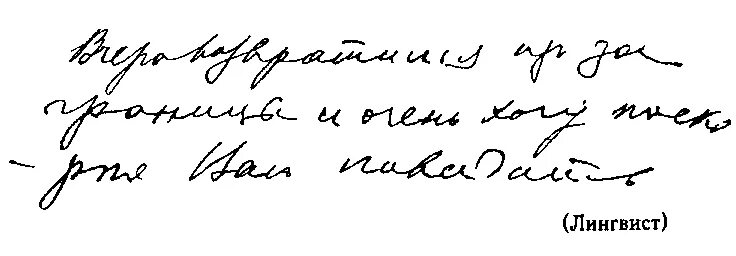 Вчера возвратился из за
границы и очень хочу поско
-рее Вас повидать
(Лингвист)